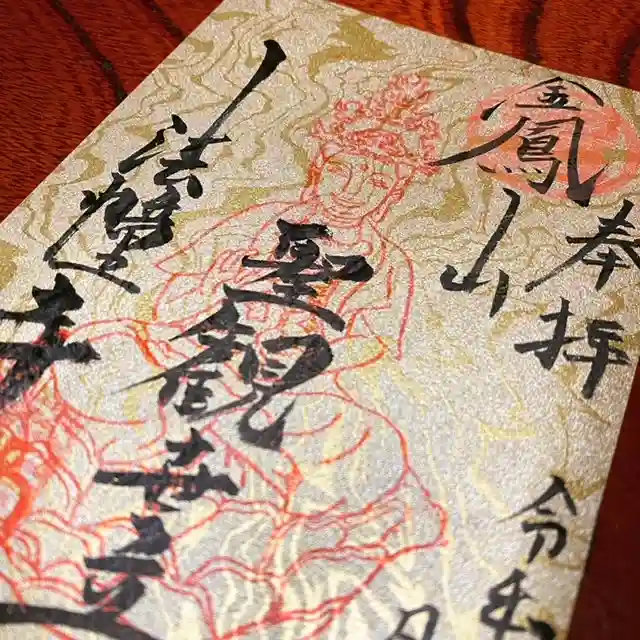 奉拝
令和 月
金鳳山
聖観世音
法 寺